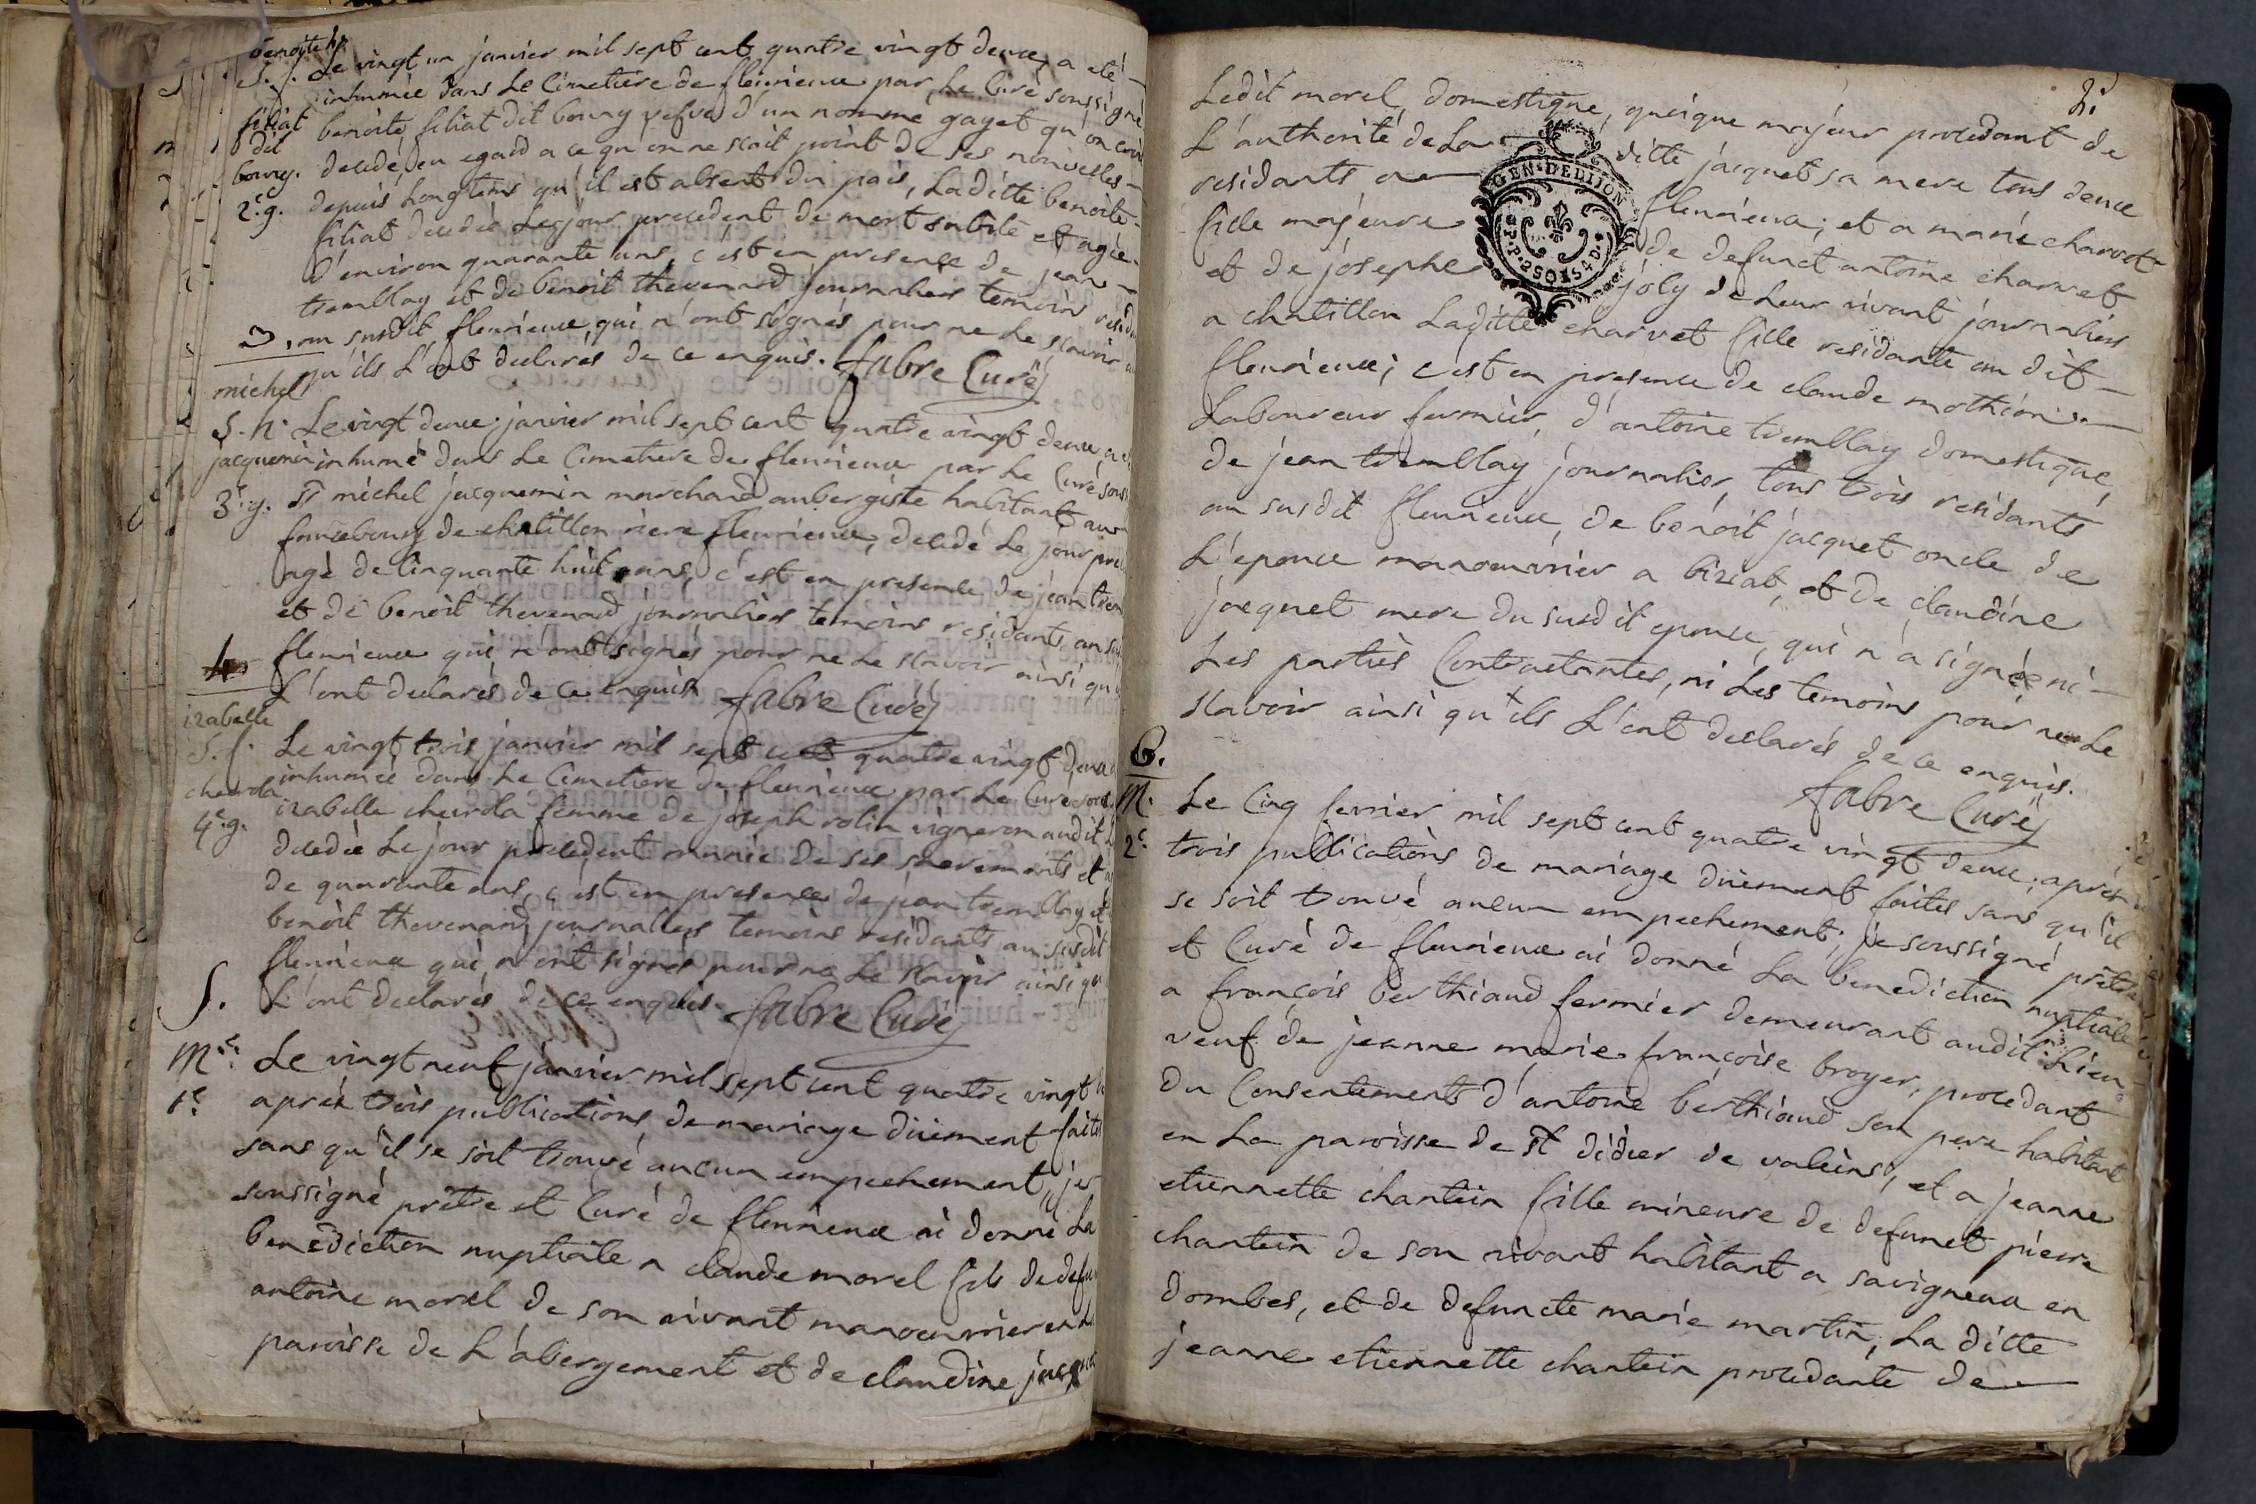 benoite
S. f. Le vingt un janvier mil sept cent quatre vingt deux, a eté
inhumée dans Le Cimetiere de fleurieux par Le Curé soussigné
filiat benoite filiat dit bourg vefve d'un nommé gayet qu'on croit
dit
bourg. decedé, eu egard a ce qu'on ne scait point de ses nouvelles
2.e g. depuis Longtems qu'il est absent du païs, Laditte benoite
filiat decedée Le jour precedent de mort subite et agée
d'environ quarante ans, c'est en presence de jean
tremblay et de benoit thevenard journaliers temoins
3. au susdit fleurieux qui n'ont signés pour ne Le scavoir
qu'ils L'ont declarés de ce enquis. fabre Curé
michel
S. h. Le vingt deux janvier mil sept cent quatre vingt deux a
jacquemin inhumé dans Le Cimetiere de fleurieux par Le Curé
3.e g. Sr michel jacquemin marchand aubergiste habitant aux
fauxbourg de chatillon riere fleurieux, decedé Le jour
agé de Cinquante huit ans, c'est en presence de jean
et de benoit thevenard journaliers temoins residants au
fleurieux qui n'ont signés pour ne Le scavoir ainsi qu
4.
L'ont declarés de ce enquis fabre Curé
izabelle
S. f. Le vingt trois janvier mil sept cent quatre vingt deux
inhumée dans Le Cimetiere de fleurieux par Le Curé
cheurda izabelle cheurda femme de joseph rolin vigneron audit
4.e g. decedée Le jour precedent munie de ses sacrements et
de quarante ans, c'est en presence de jean tremblay et
benoit thevenard journaliers temoins residants au susdit
fleurieux qui n'ont signés pour ne Le scavoir ainsi qu
L'ont declarés de ce enquis fabre Curé
5.
M.e Le vingt neuf janvier mil sept cent quatre vingt
1.e après trois publications de mariage düement faites
sans qu'il se soit trouvé aucun empechement, je
soussigné prêtre et Curé de fleurieux ai donné La
benediction nuptiale a claude morel fils de
antoine morel de son vivant manoeuvrier en
paroisse de L'abergement et de claudine jacquet
2.
Ledit morel, domestique, quoique majeur procedant de
L'authorité de La ditte jacquet sa mere tous deux
residants a fleurieux; et a marie charvet
GEN. DE DIJON
fille majeure de defunct antoine charvet
et de josephe joly de Leur vivant journaliers
a chatillon Laditte charvet fille residante au dit
fleurieux; c'est en presence de claude mothion
Laboureur fermier, d'antoine tremblay domestique,
de jean tremblay journalier, tous trois residants
au susdit fleurieux, de benoit jacquet oncle de
L'epoux manoeuvrier a biziat, et de claudine
jacquet mere du susdit epoux, qui n'a signée ni
Les parties Contractantes, ni Les temoins pour ne Le
scavoir ainsi qu'ils L'ont declarés de ce enquis.
fabre Curé
6.
M. Le Cinq fevrier mil sept cent quatre vingt deux, après
2.e trois publications de mariage düement faites sans qu'il
se soit trouvé aucun empechement; je soussigné prêtre
et Curé de fleurieux ai donné La benediction nuptiale
a françois berthiaud fermier demeurant audit Lieu
veuf de jeanne marie françoise broyer, procedant
du Consentement d'antoine berthiaud son pere habitant
en La paroisse de St didier de valeins, et a jeanne
etiennette chantein fille mineure de defunct pierre
chantein de son vivant habitant a savigneux en
dombes, et de defuncte marie martin, La ditte
jeanne etiennette chantein procedante de